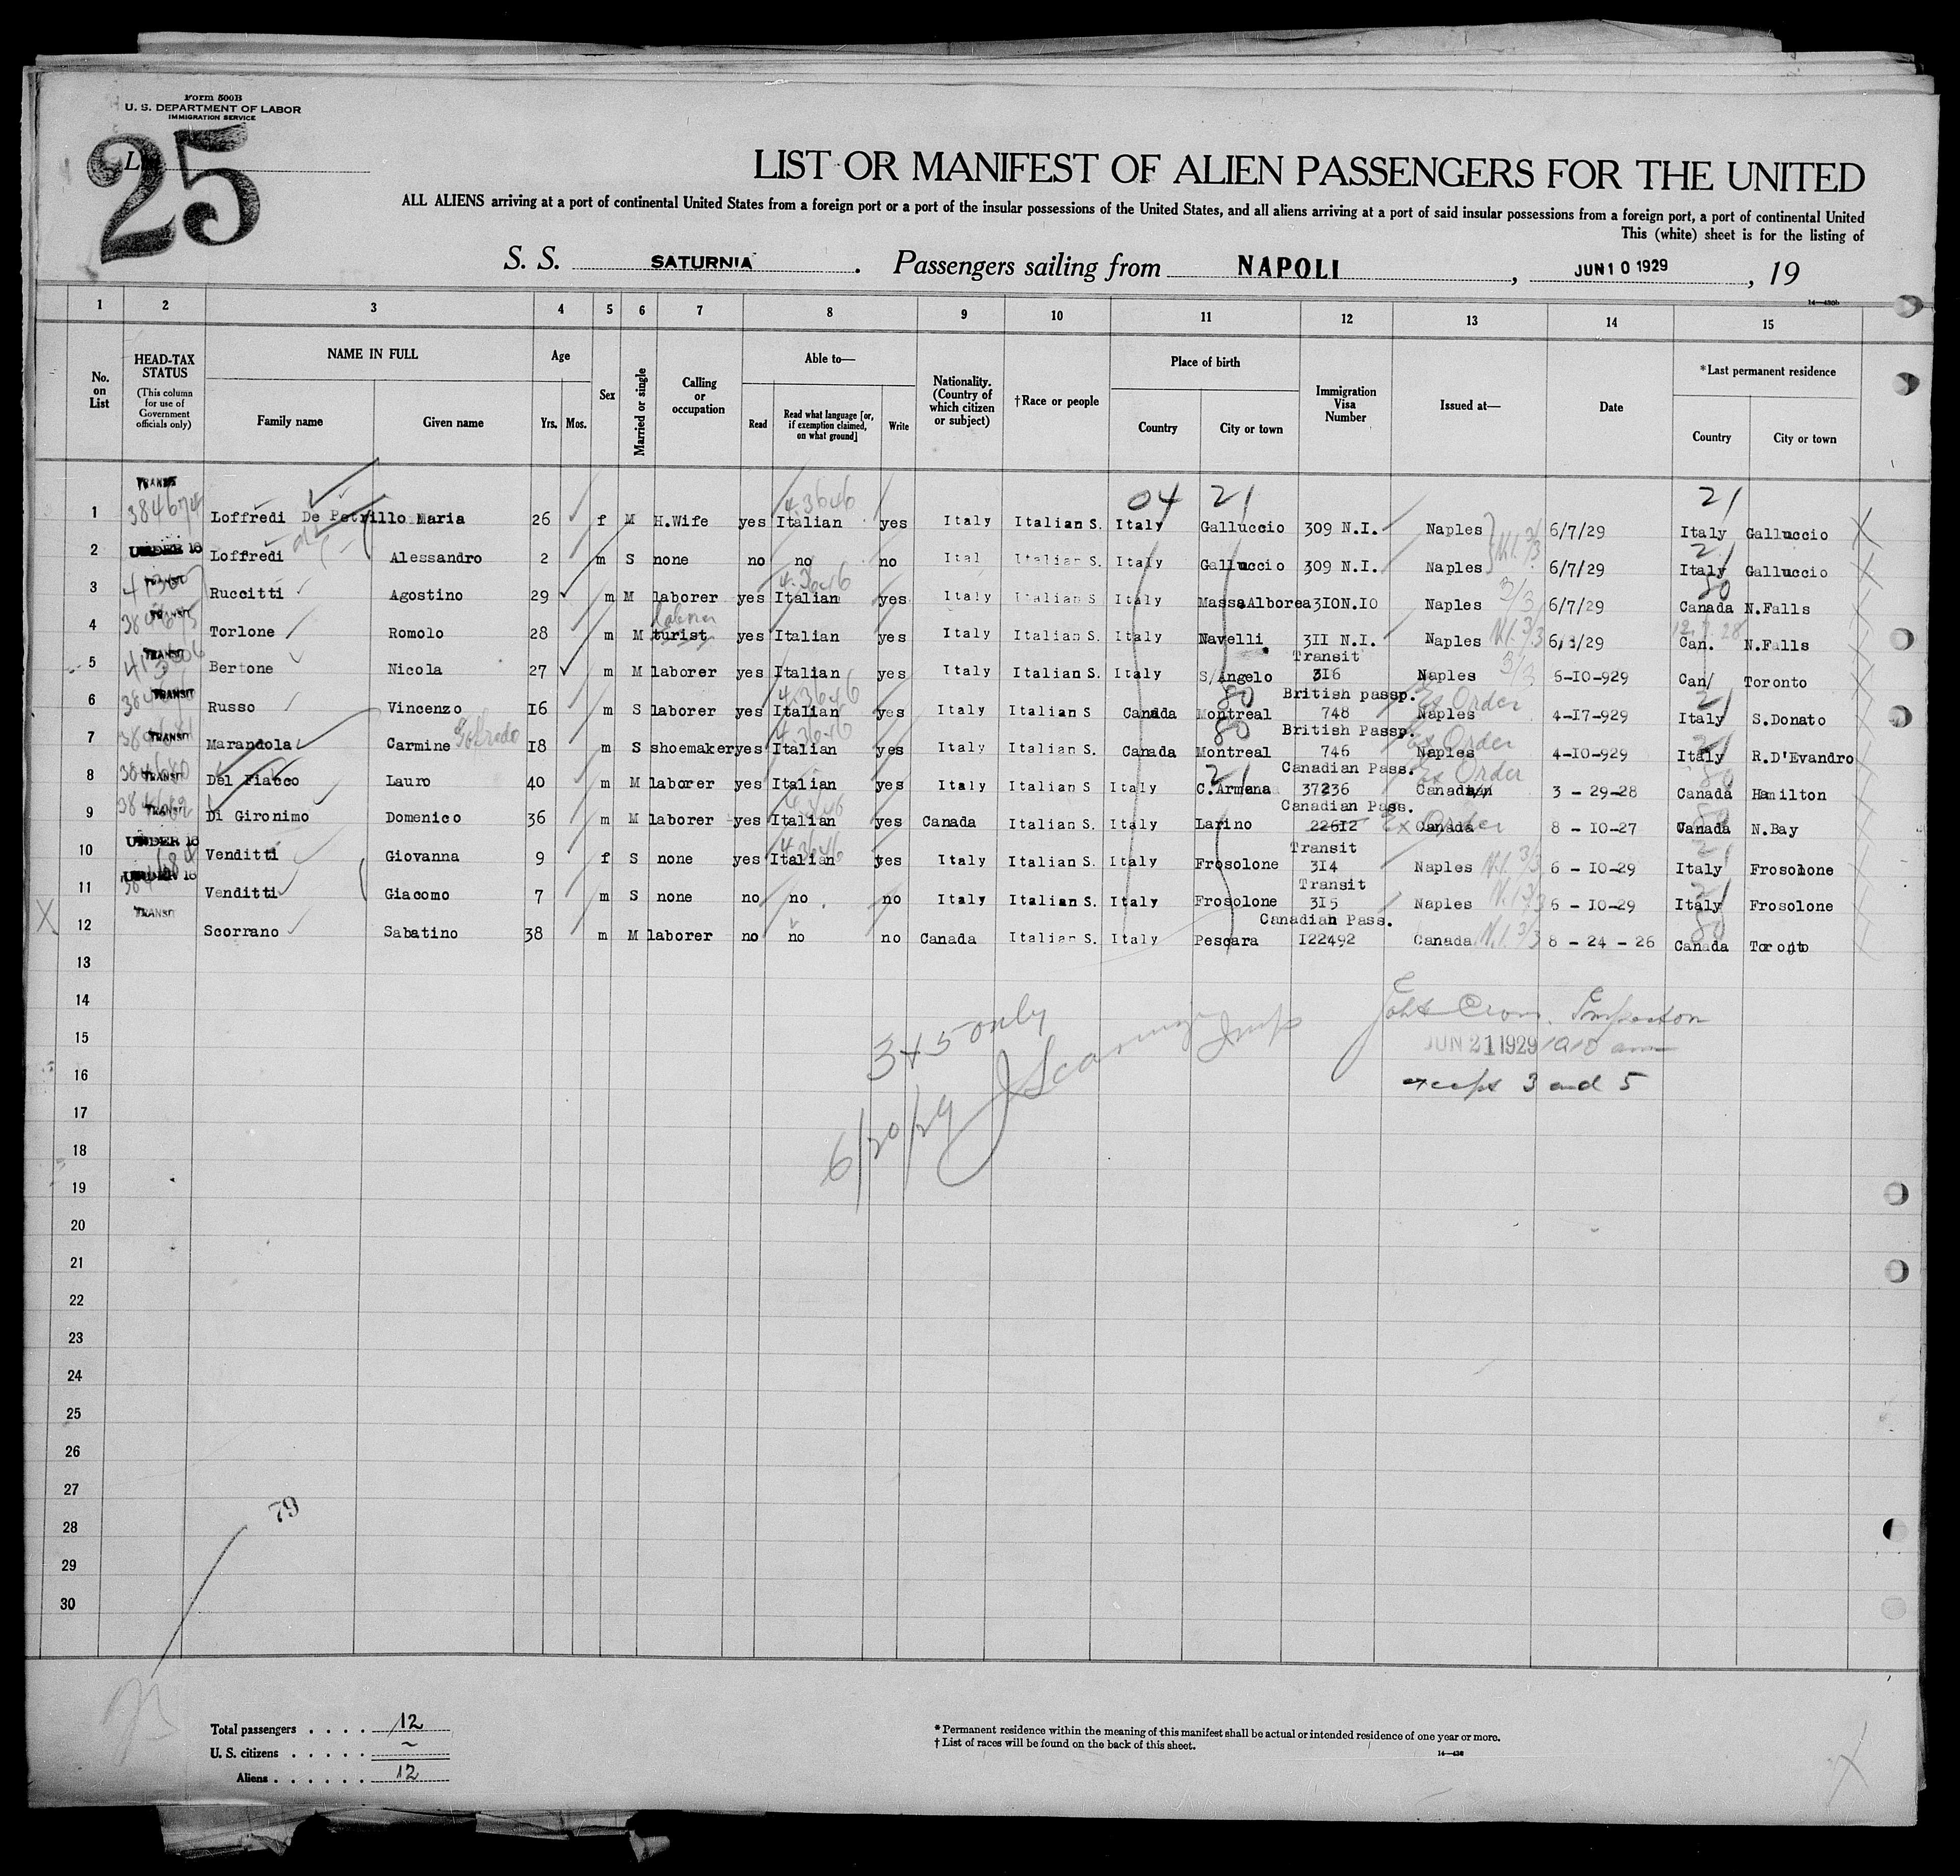 Form 500B
U. S. DEPARTMENT OF LABOR
IMMIGRATION SERVICE
25
LIST OR MANIFEST OF ALIEN PASSENGERS FOR THE UNITED
ALL ALIENS arriving at a port of continental United States from a foreign port or a port of the insular possessions of the United States, and all aliens arriving at a port of said insular possessions from a foreign port, a port of continental United
This (white) sheet is for the listing of
S. S. SATURNIA . Passengers sailing from NAPOLI , JUN 10 1929 , 19
14—430b
1 2 3 4 5 6 7 8 9 10 11 12 13 14 15
No. on List
HEAD-TAX STATUS
(This column for use of Government officials only)
NAME IN FULL
Family name Given name
Age
Yrs. Mos.
Sex
Married or single
Calling or occupation
Able to—
Read Read what language [or, if exemption claimed, on what ground] Write
Nationality. (Country of which citizen or subject)
†Race or people
Place of birth
Country City or town
Immigration Visa Number
Issued at—
Date
*Last permanent residence
Country City or town
TRANSIT 384674 43646 04 21 21
1 Loffredi De Petrillo Maria 26 f M H.Wife yes Italian yes Italy Italian S. Italy Galluccio 309 N.I. Naples 6/7/29 Italy Galluccio X
2 UNDER 16 Loffredi Alessandro 2 m S none no no no Ital Italian S. Italy Galluccio 309 N.I. Naples N.I. 3/3 6/7/29 Italy Galluccio X
3 TRANSIT Ruccitti Agostino 29 m M laborer yes Italian yes Italy Italian S Italy MassaAlborea 310N.IO Naples 3/3 6/7/29 Canada N.Falls
laborer
4 TRANSIT Torlone Romolo 28 m M turist yes Italian yes Italy Italian S. Italy Navelli 311 N.I. Naples N.I. 3/3 Can. N.Falls
Transit
5 TRANSIT Bertone Nicola 27 m M laborer yes Italian yes Italy Italian S. Italy S/Angelo 316 Naples 3/3 6-10-929 Can/ Toronto
43646 80 British passp. Ex Order 21
6 TRANSIT Russo Vincenzo 16 m S laborer yes Italian yes Italy Italian S Canada Montreal 748 Naples 4-17-929 Italy S.Donato
43646 80 British Passp. Ex Order
7 TRANSIT Marandola Carmine 18 m S shoemaker yes Italian yes Italy Italian S. Canada Montreal 746 Naples 4-10-929 Italy R.D'Evandro
21 Canadian Pass. Ex Order 80
8 TRANSIT Del Fiacco Lauro 40 m M laborer yes Italian yes Italy Italian S Italy C.Armena 37236 Canadian 3 - 29-28 Canada Hamilton
Canadian Pass.
9 Di Gironimo Domenico 36 m M laborer yes Italian yes Canada Italian S. Italy Larino 22612 Ex Order Canada 8 - 10-27 Canada N.Bay
43646 Transit
10 UNDER 16 Venditti Giovanna 9 f S none yes Italian yes Italy Italian S. Italy Frosolone 314 Naples N.I. 3/3 6 - 10-29 Italy Frosolone
Transit
11 UNDER 16 Venditti Giacomo 7 m S none no no no Italy Italian S. Italy Frosolone 315 Naples N.I. 3/3 6 - 10-29 Italy Frosolone
Canadian Pass. 80
X 12 TRANSIT Scorrano Sabatino 38 m M laborer no no no Canada Italian S. Italy Pescara 122492 Canada N.I. 3/3 8 - 24 - 26 Canada Toronto
13
14
15
16
17
18
19
20
21
22
23
24
25
26
27
28
29
30
3 + 5 only
6/20/29
JUN 21 1929
except 3 and 5
79
Total passengers . . . . 12
U. S. citizens . . . . . ~
Aliens . . . . . . 12
* Permanent residence within the meaning of this manifest shall be actual or intended residence of one year or more.
† List of races will be found on the back of this sheet.
14—430